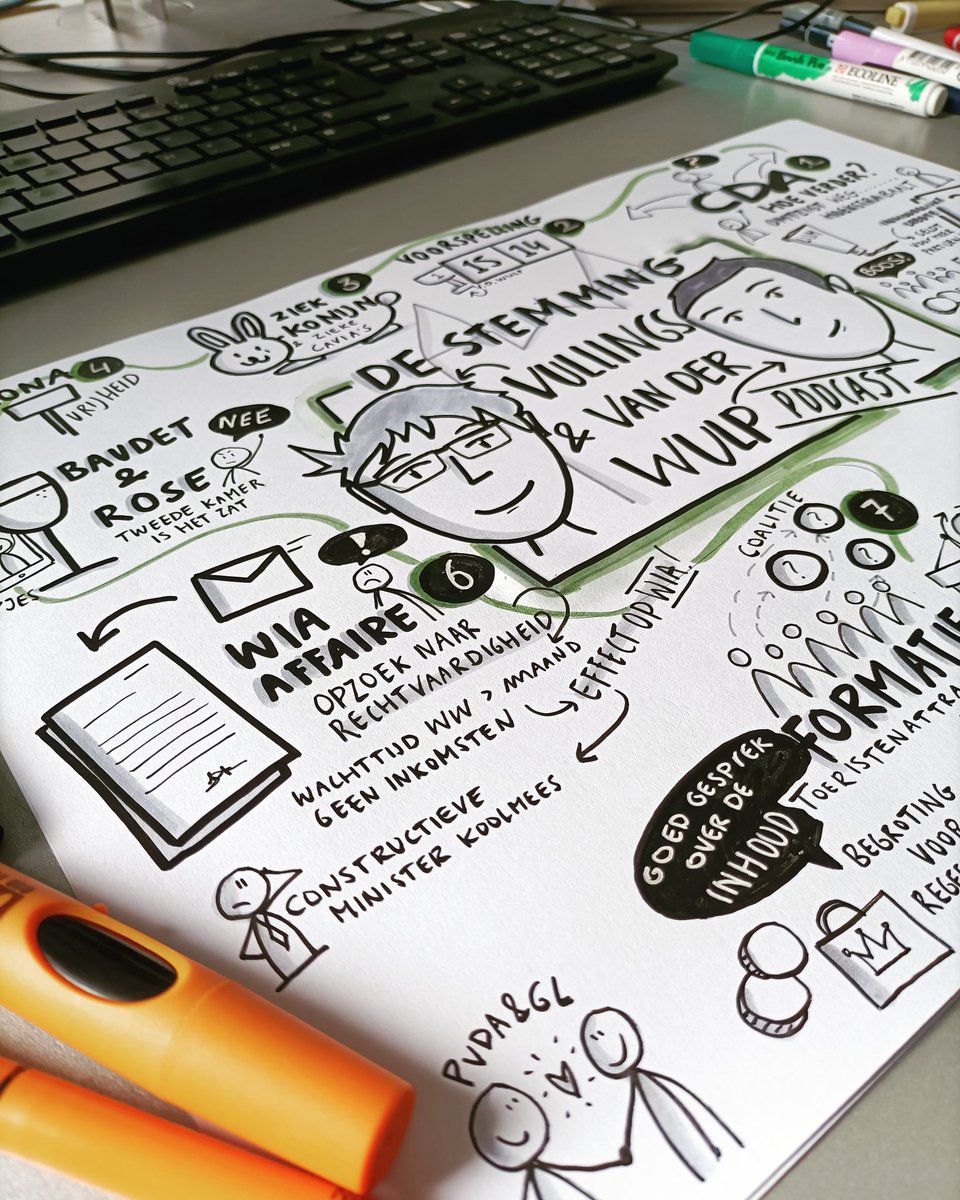 Brush Pen
ECOLINE
1
CDA
HOE VERDER?
BOOS!
2
VOORSPELLING
15 14
V.D. WULP
3
ZIEK
KONIJN
& ZIEKE
CAVIA'S
DE STEMMING
VULLINGS
& VAN DER
WULP PODCAST
4
ONA
VRIJHEID
BAUDET
&
ROSE
NEE
TWEEDE KAMER
IS HET ZAT
PJES
!
6
WIA
AFFAIRE
OPZOEK NAAR
RECHTVAARDIGHEID
WACHTTIJD WW > MAAND
GEEN INKOMSTEN
EFFECT OP WIA!
CONSTRUCTIEVE
MINISTER KOOLMEES
7
COALITIE
?
?
?
FORMATIE
TOERISTENATTRA
GOED GESPREK
OVER DE
INHOUD
BEGROTING
VOOR
REGE
PVDA&GL